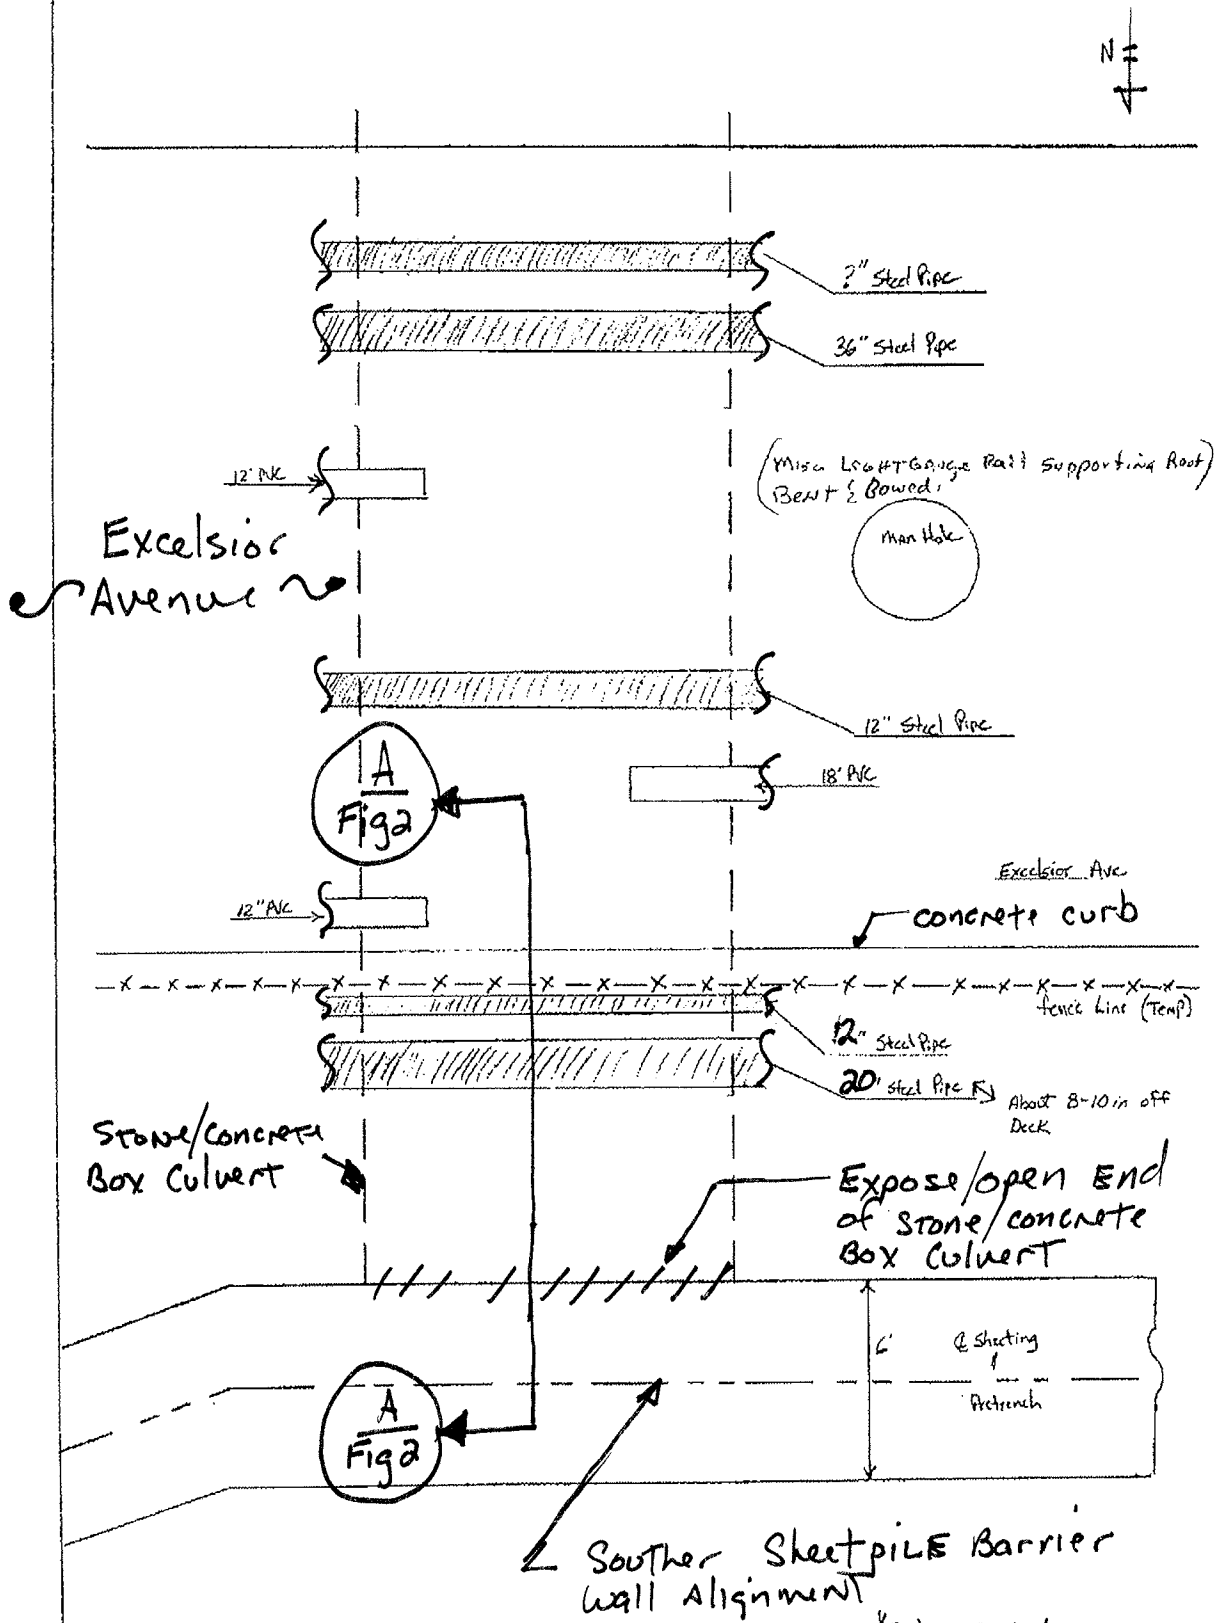 N
?" Steel Pipe
36" Steel Pipe
12" PVC
(Misc LIGHT GAUGE Rail Supporting Roof)
Bent & Bowed,
Man Hole
Excelsior
Avenue
12" Steel Pipe
A
Fig 2
18" PVC
12" PVC
Excelsior Ave
concrete curb
fence Line (Temp)
12" Steel Pipe
20" Steel Pipe
About 8-10 in off
Deck
Stone/Concrete
Box Culvert
Expose/open End
of Stone/concrete
Box Culvert
6'
℄ Sheeting
Pretrench
A
Fig 2
Souther SheetpiLE Barrier
Wall Alignment